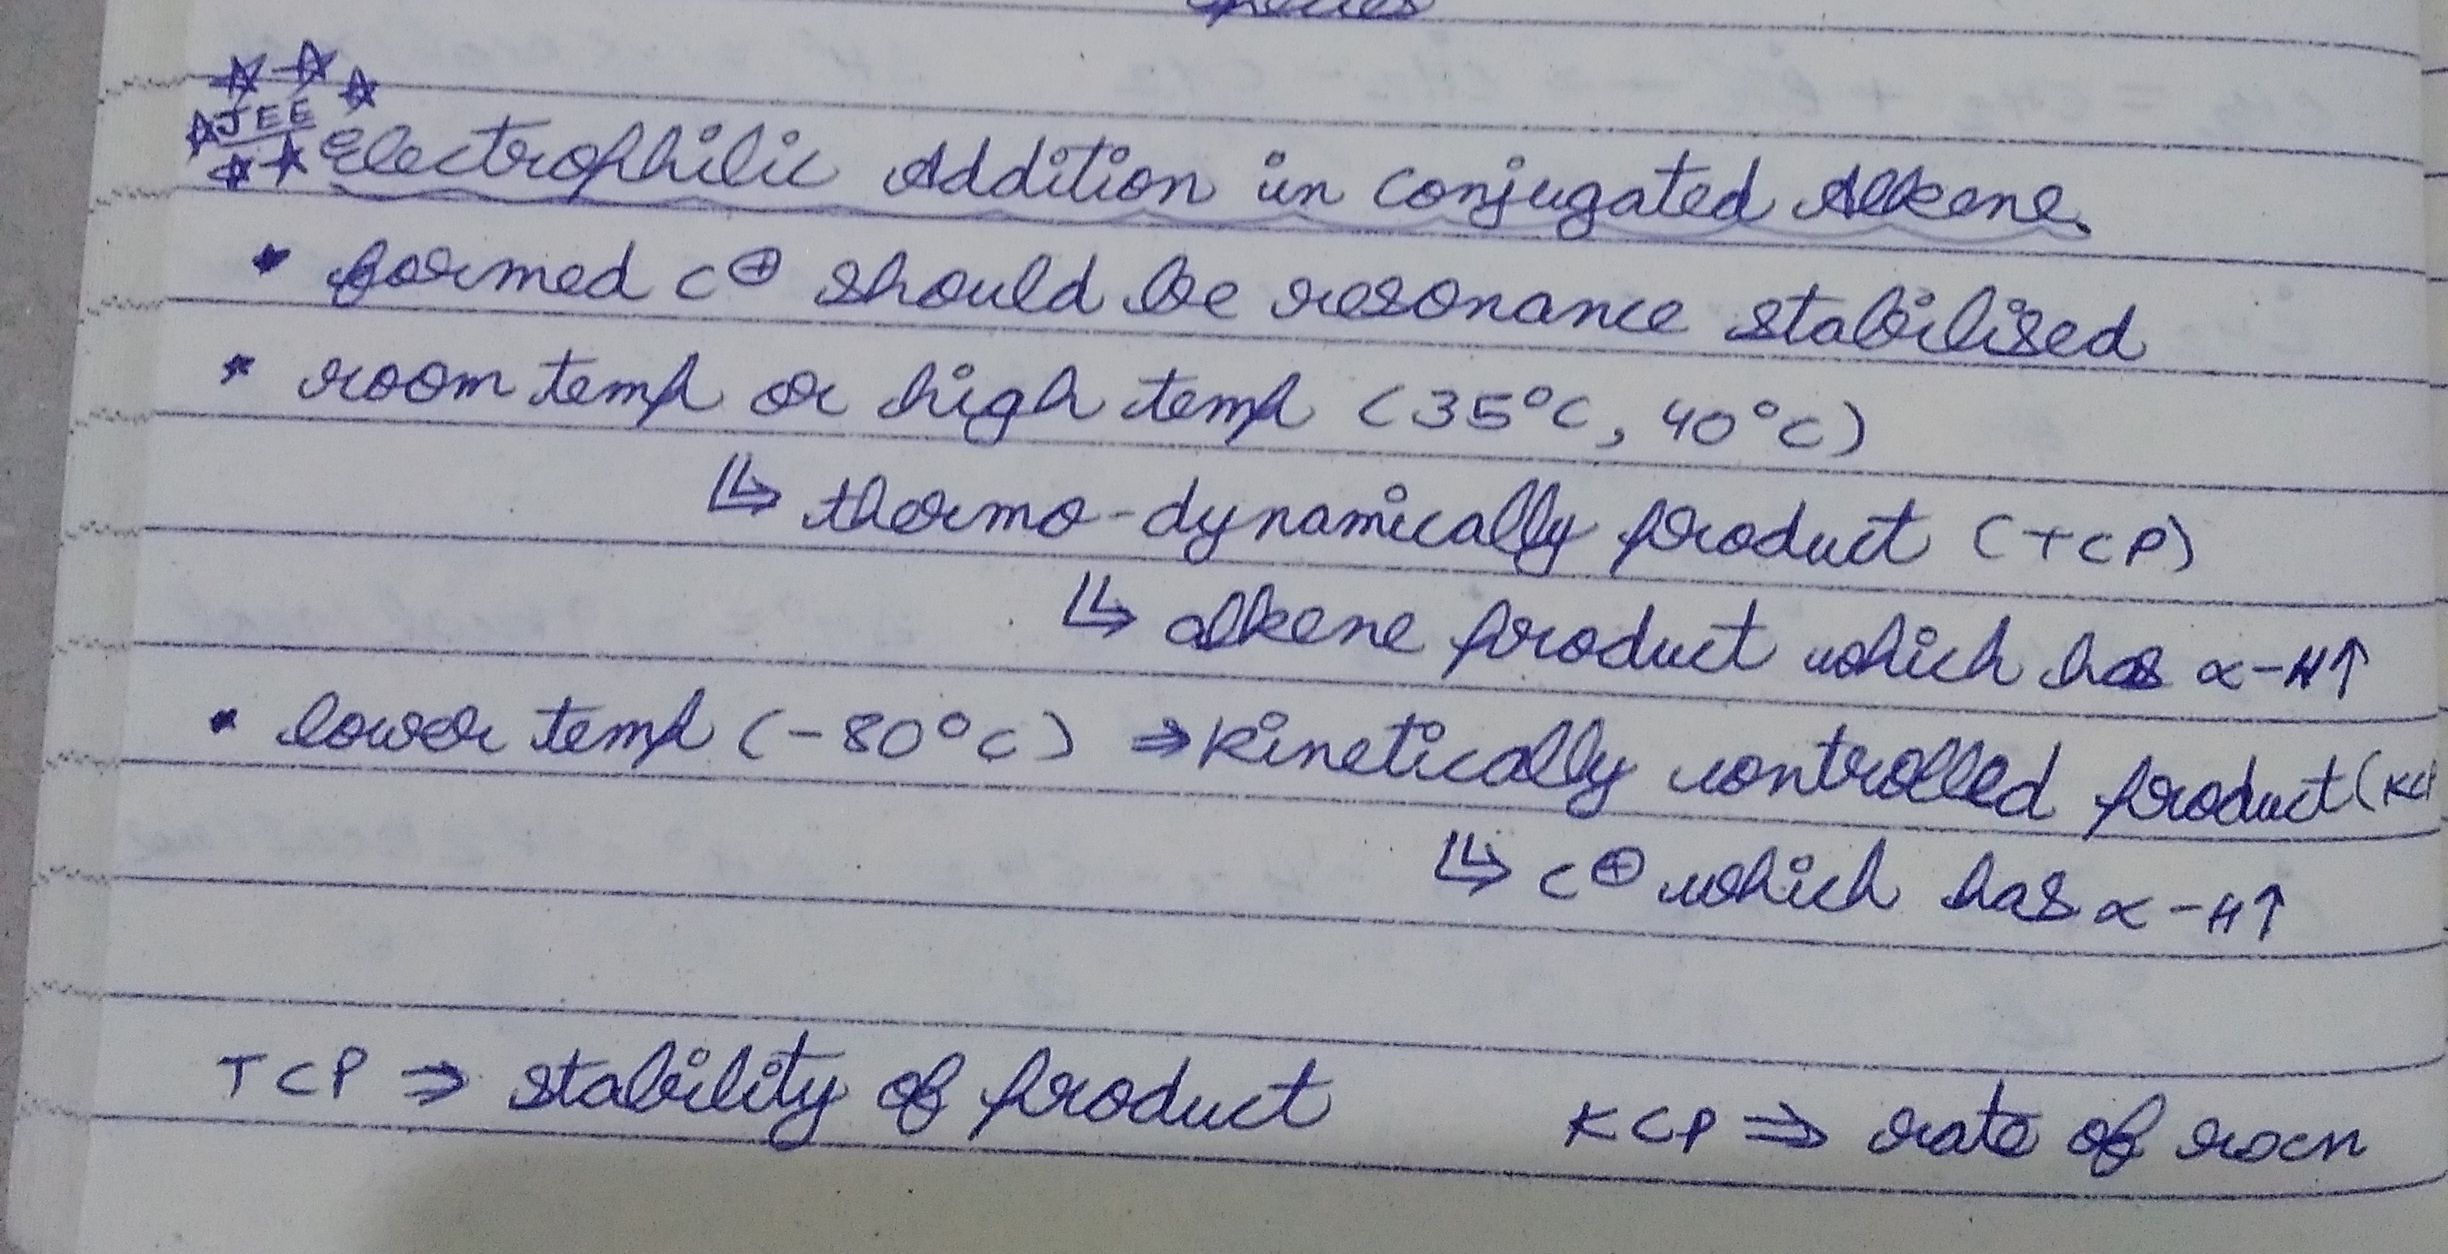 species
JEE
Electrophilic Addition in conjugated Alkene
• formed C⊕ should be resonance stabilised
• room temp or high temp (35°C, 40°C)
↳ thermo-dynamically product (TCP)
↳ alkene product which has α-H↑
• lower temp (-80°C) ⇒ kinetically controlled product (KCP
↳ C⊕ which has α-H↑
TCP ⇒ stability of product KCP ⇒ rate of rxn